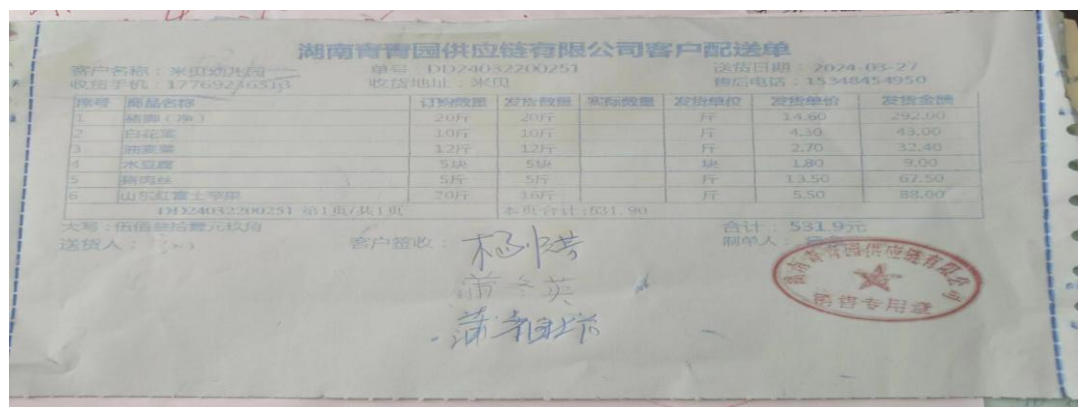 湖南青青园供应链有限公司客户配送单
客户名称：米贝幼儿园 单号：DD24032200251 送货日期：2024-03-27
收货手机： 收货地址：米贝 售后电话：15348454950
序号 商品名称 订购数量 发货数量 实际数量 发货单位 发货单价 发货金额
1 猪脚（净） 20斤 20斤 斤 14.60 292.00
2 白花菜 10斤 10斤 斤 4.30 43.00
3 油麦菜 12斤 12斤 斤 2.70 32.40
4 水豆腐 5块 5块 块 1.80 9.00
5 猪肉丝 5斤 5斤 斤 13.50 67.50
6 山东红富士苹果 20斤 16斤 斤 5.50 88.00
DD24032200251 第1页/共1页 本页合计:531.90
大写：伍佰叁拾壹元玖角 合计：531.9元
送货人： 客户签收： 制单人：
湖南青青园供应链有限公司
蒲冬英
销售专用章